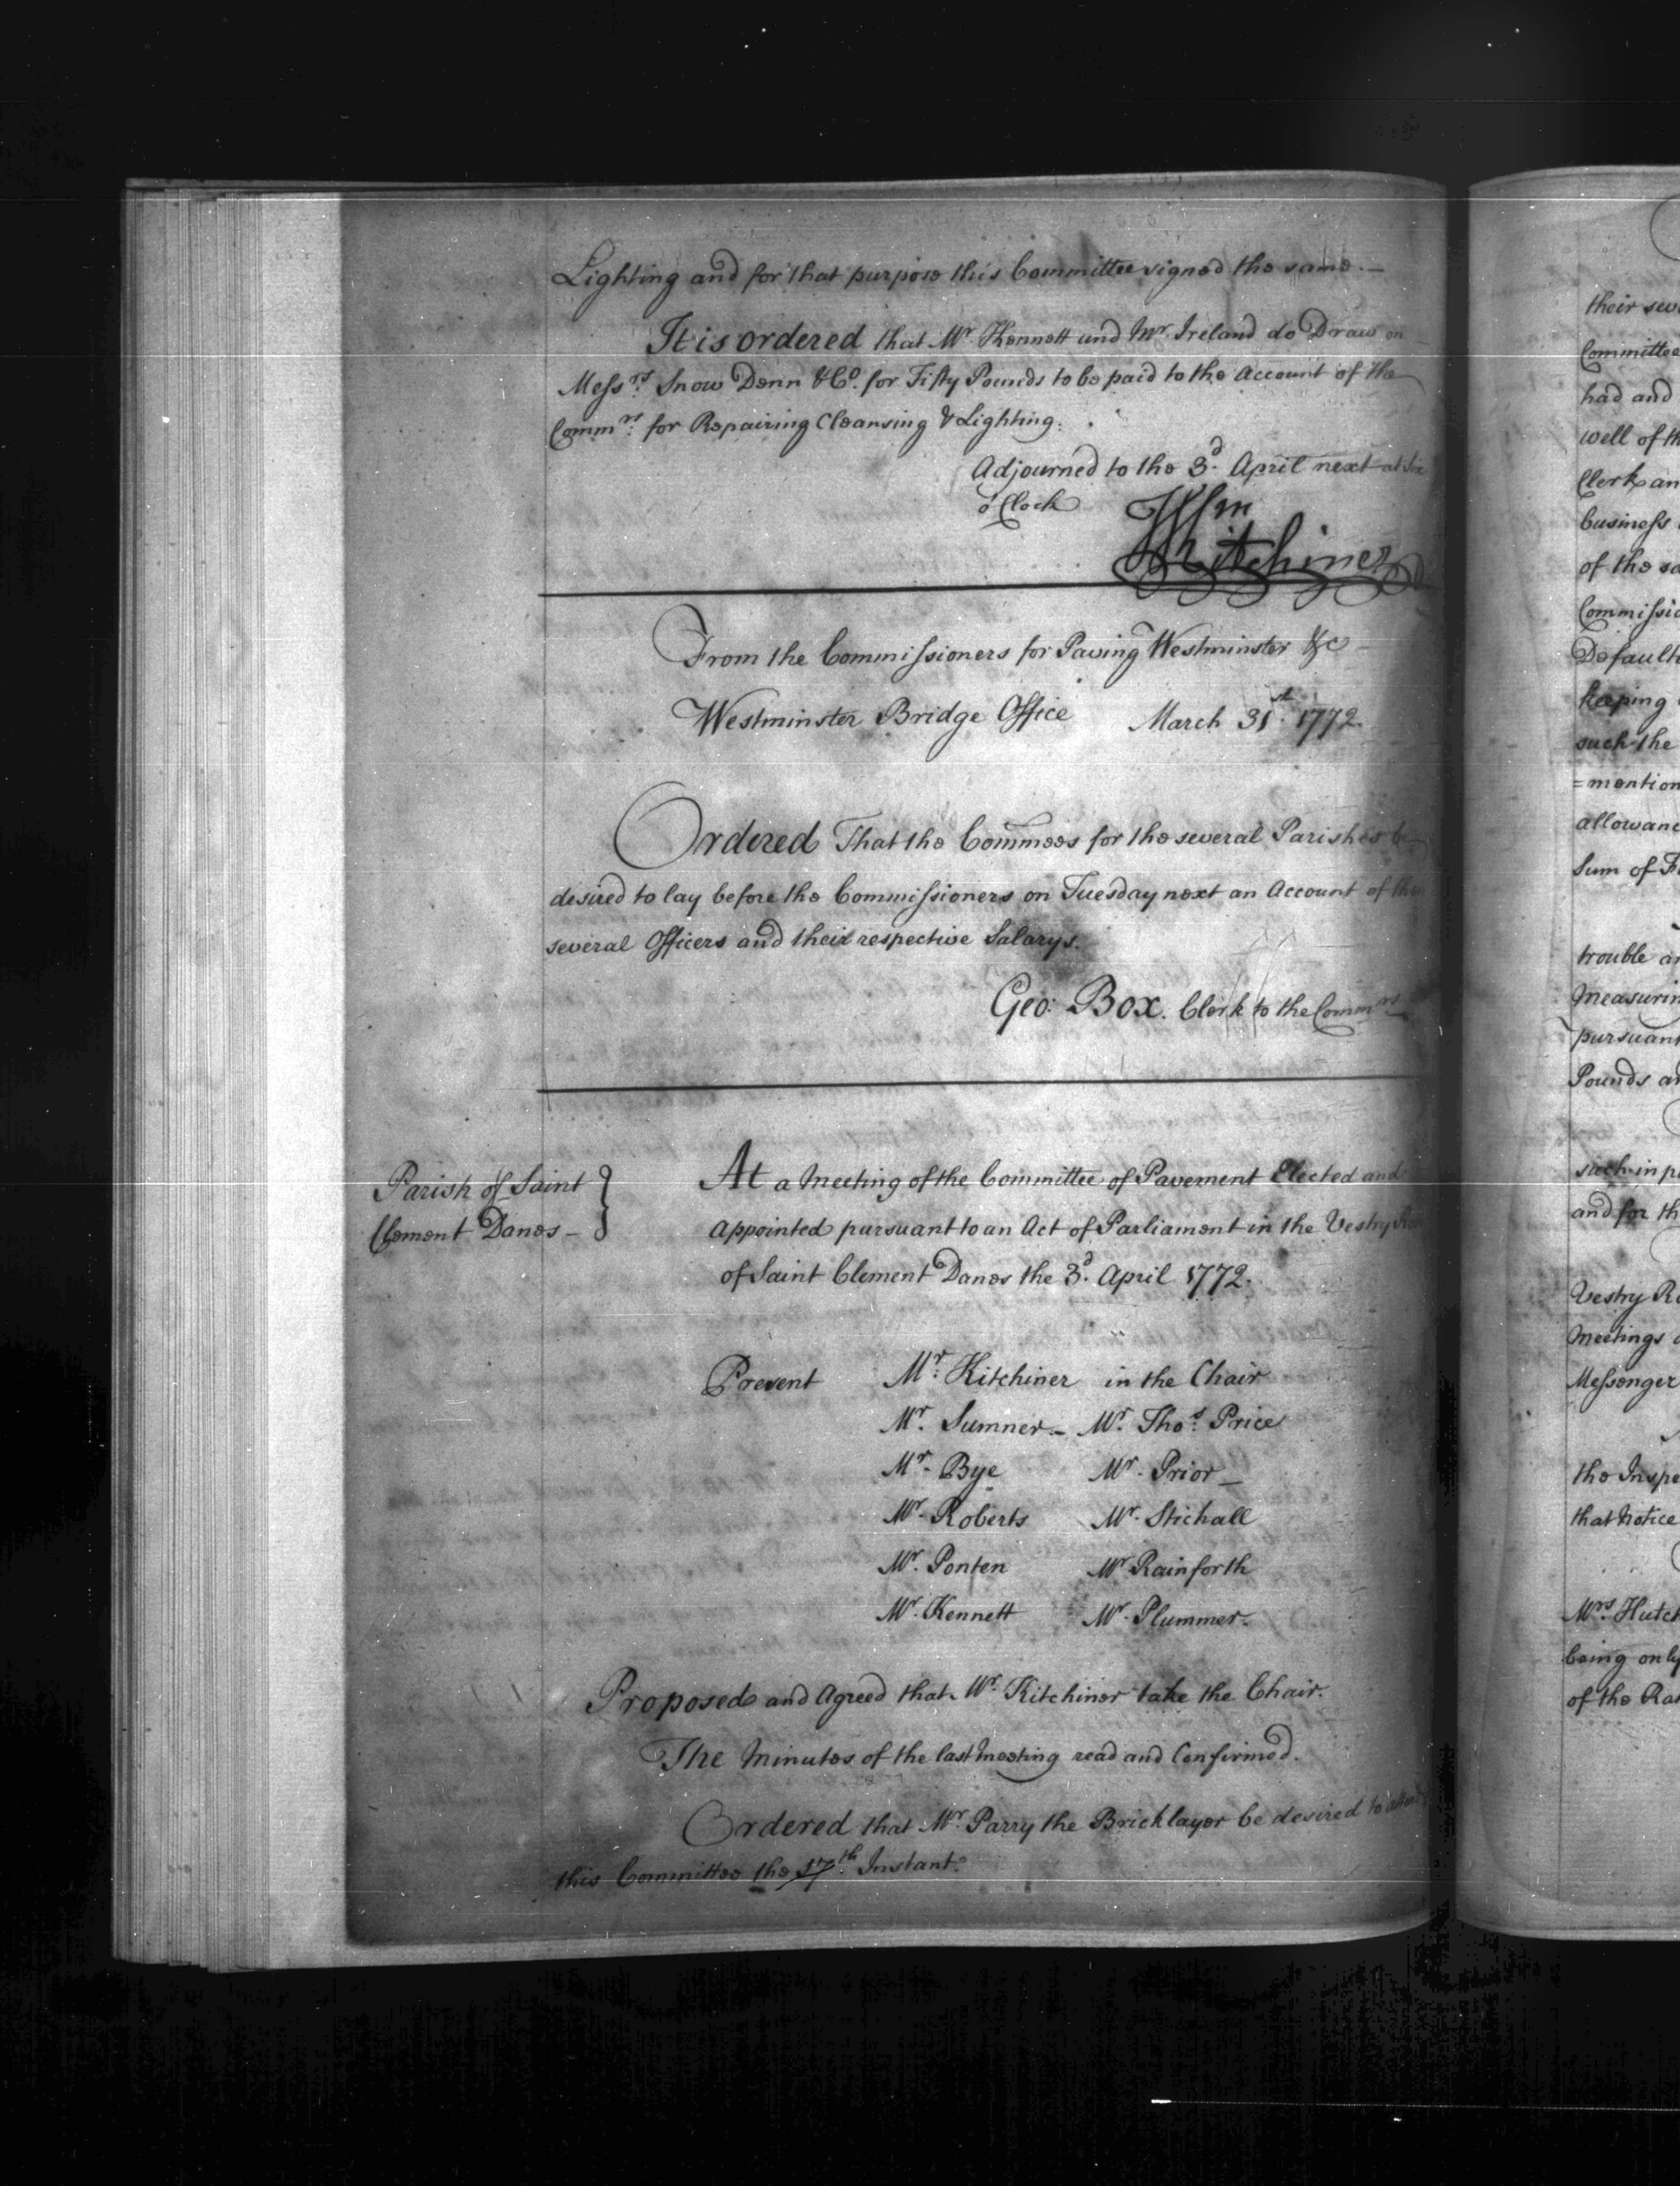 Lighting and for that purpose this Committee signed the same.—
It is ordered that Mr. Kennett and Mr. Ireland do Draw on
Messrs. Snow Denn & Co. for Fifty Pounds to be paid to the Account of the
Commrs. for Repairing Cleansing & Lighting.
Adjourned to the 3d. April next at Six
o'Clock
Wm
Kitchiner
From the Commissioners for Paving Westminster &c
Westminster Bridge Office March 31st. 1772.
Ordered That the Commees for the several Parishes be
desired to lay before the Commissioners on Tuesday next an Account of their
several Officers and their respective Salarys.
Geo: Box. Clerk to the Commrs
Parish of Saint
Clement Danes—
At a Meeting of the Committee of Pavement Elected and
Appointed pursuant to an Act of Parliament in the Vestry
of Saint Clement Danes the 3d. April 1772.
Present Mr. Kitchiner in the Chair
Mr. Sumner— Mr. Thos. Price
Mr. Bye Mr. Prior—
Mr. Roberts Mr. Stichall
Mr. Ponten Mr. Rainforth
Mr. Kennett Mr. Plummer.
Proposed and Agreed that Mr. Kitchiner take the Chair.
The Minutes of the last Meeting read and Confirmed.
Ordered that Mr. Parry the Bricklayer be desired to attend
this Committee the 17th Instant.
their
Committee
had and
well of
Clerk
business
of the
Defaul
keeping
such the
=mention
allowanc
Sum of
trouble
Measurin
pursuant
Pounds
such in
and for
Vestry
Meetings
Messenger
the Inspe
that Notice
Mrs. Hutch
being only
of the